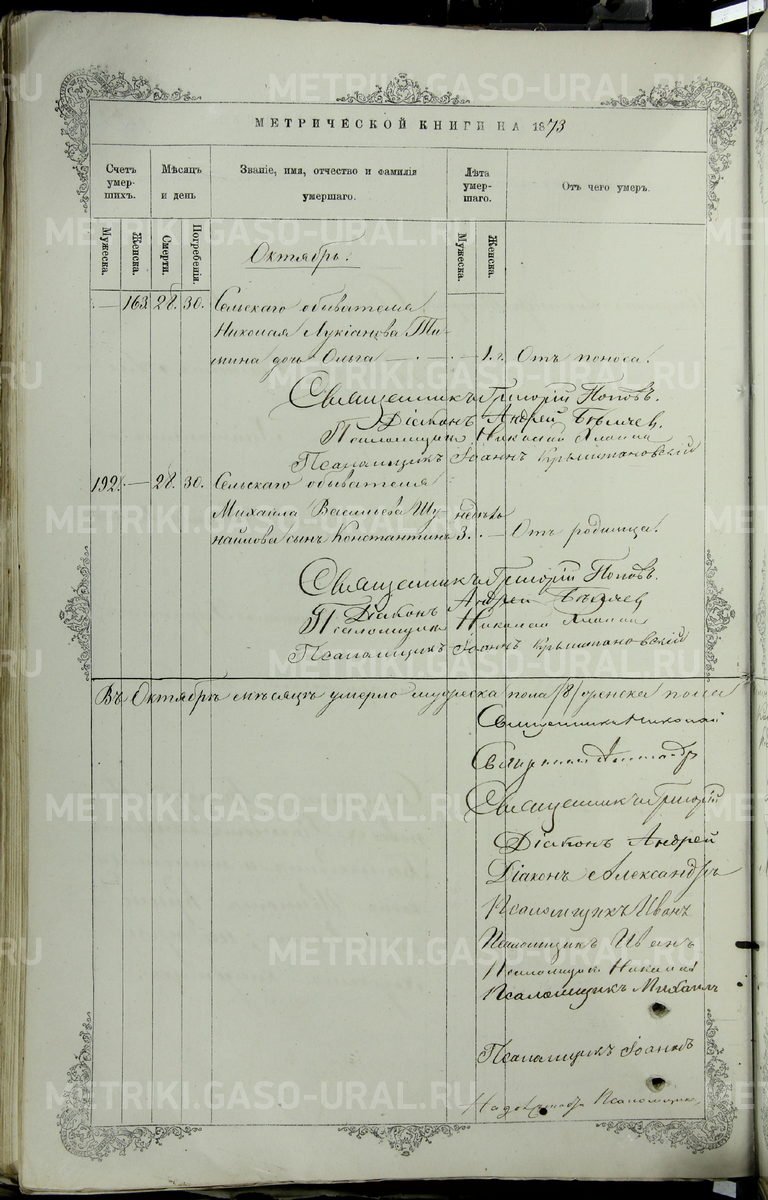 МЕТРИЧЕСКОЙ КНИГИ НА 1873
Счетъ умер-шихъ.
Мѣсяцъ и день
Званіе, имя, отчество и фамилія умершаго.
Лѣта умер-шаго.
Отъ чего умеръ.
Мужеска. Женска. Смерти. Погребенія. Мужеска. Женска.
Октябрь.
— 163. 28. 30. Сельскаго обывателя
Николая Лукіанова
дочь Ольга — 1. г. Отъ поноса.
Священникъ Григорій Поповъ.
Діаконъ Андрей
Псаломщикъ Николай
Псаломщикъ Іоаннъ Крыжановскій
192. — 28. 30. Сельскаго обывателя
Михайла Васильева Шу- недѣль
найлова сынъ Константинъ 3. — Отъ родимца.
Священникъ Григорій Поповъ.
Діаконъ Андрей
Псаломщикъ Николай
Псаломщикъ Іоаннъ Крыжановскій
Въ Октябрѣ мѣсяцѣ умерло мужеска пола /8/ женска пола
Священникъ Николай
Священникъ
Священникъ Григорій
Діаконъ Андрей
Діаконъ Александръ
Псаломщикъ Иванъ
Псаломщикъ Иванъ
Псаломщикъ Николай
Псаломщикъ Михаилъ
Псаломщикъ Іоаннъ
Псаломщика
METRIKI.GASO-URAL.RU